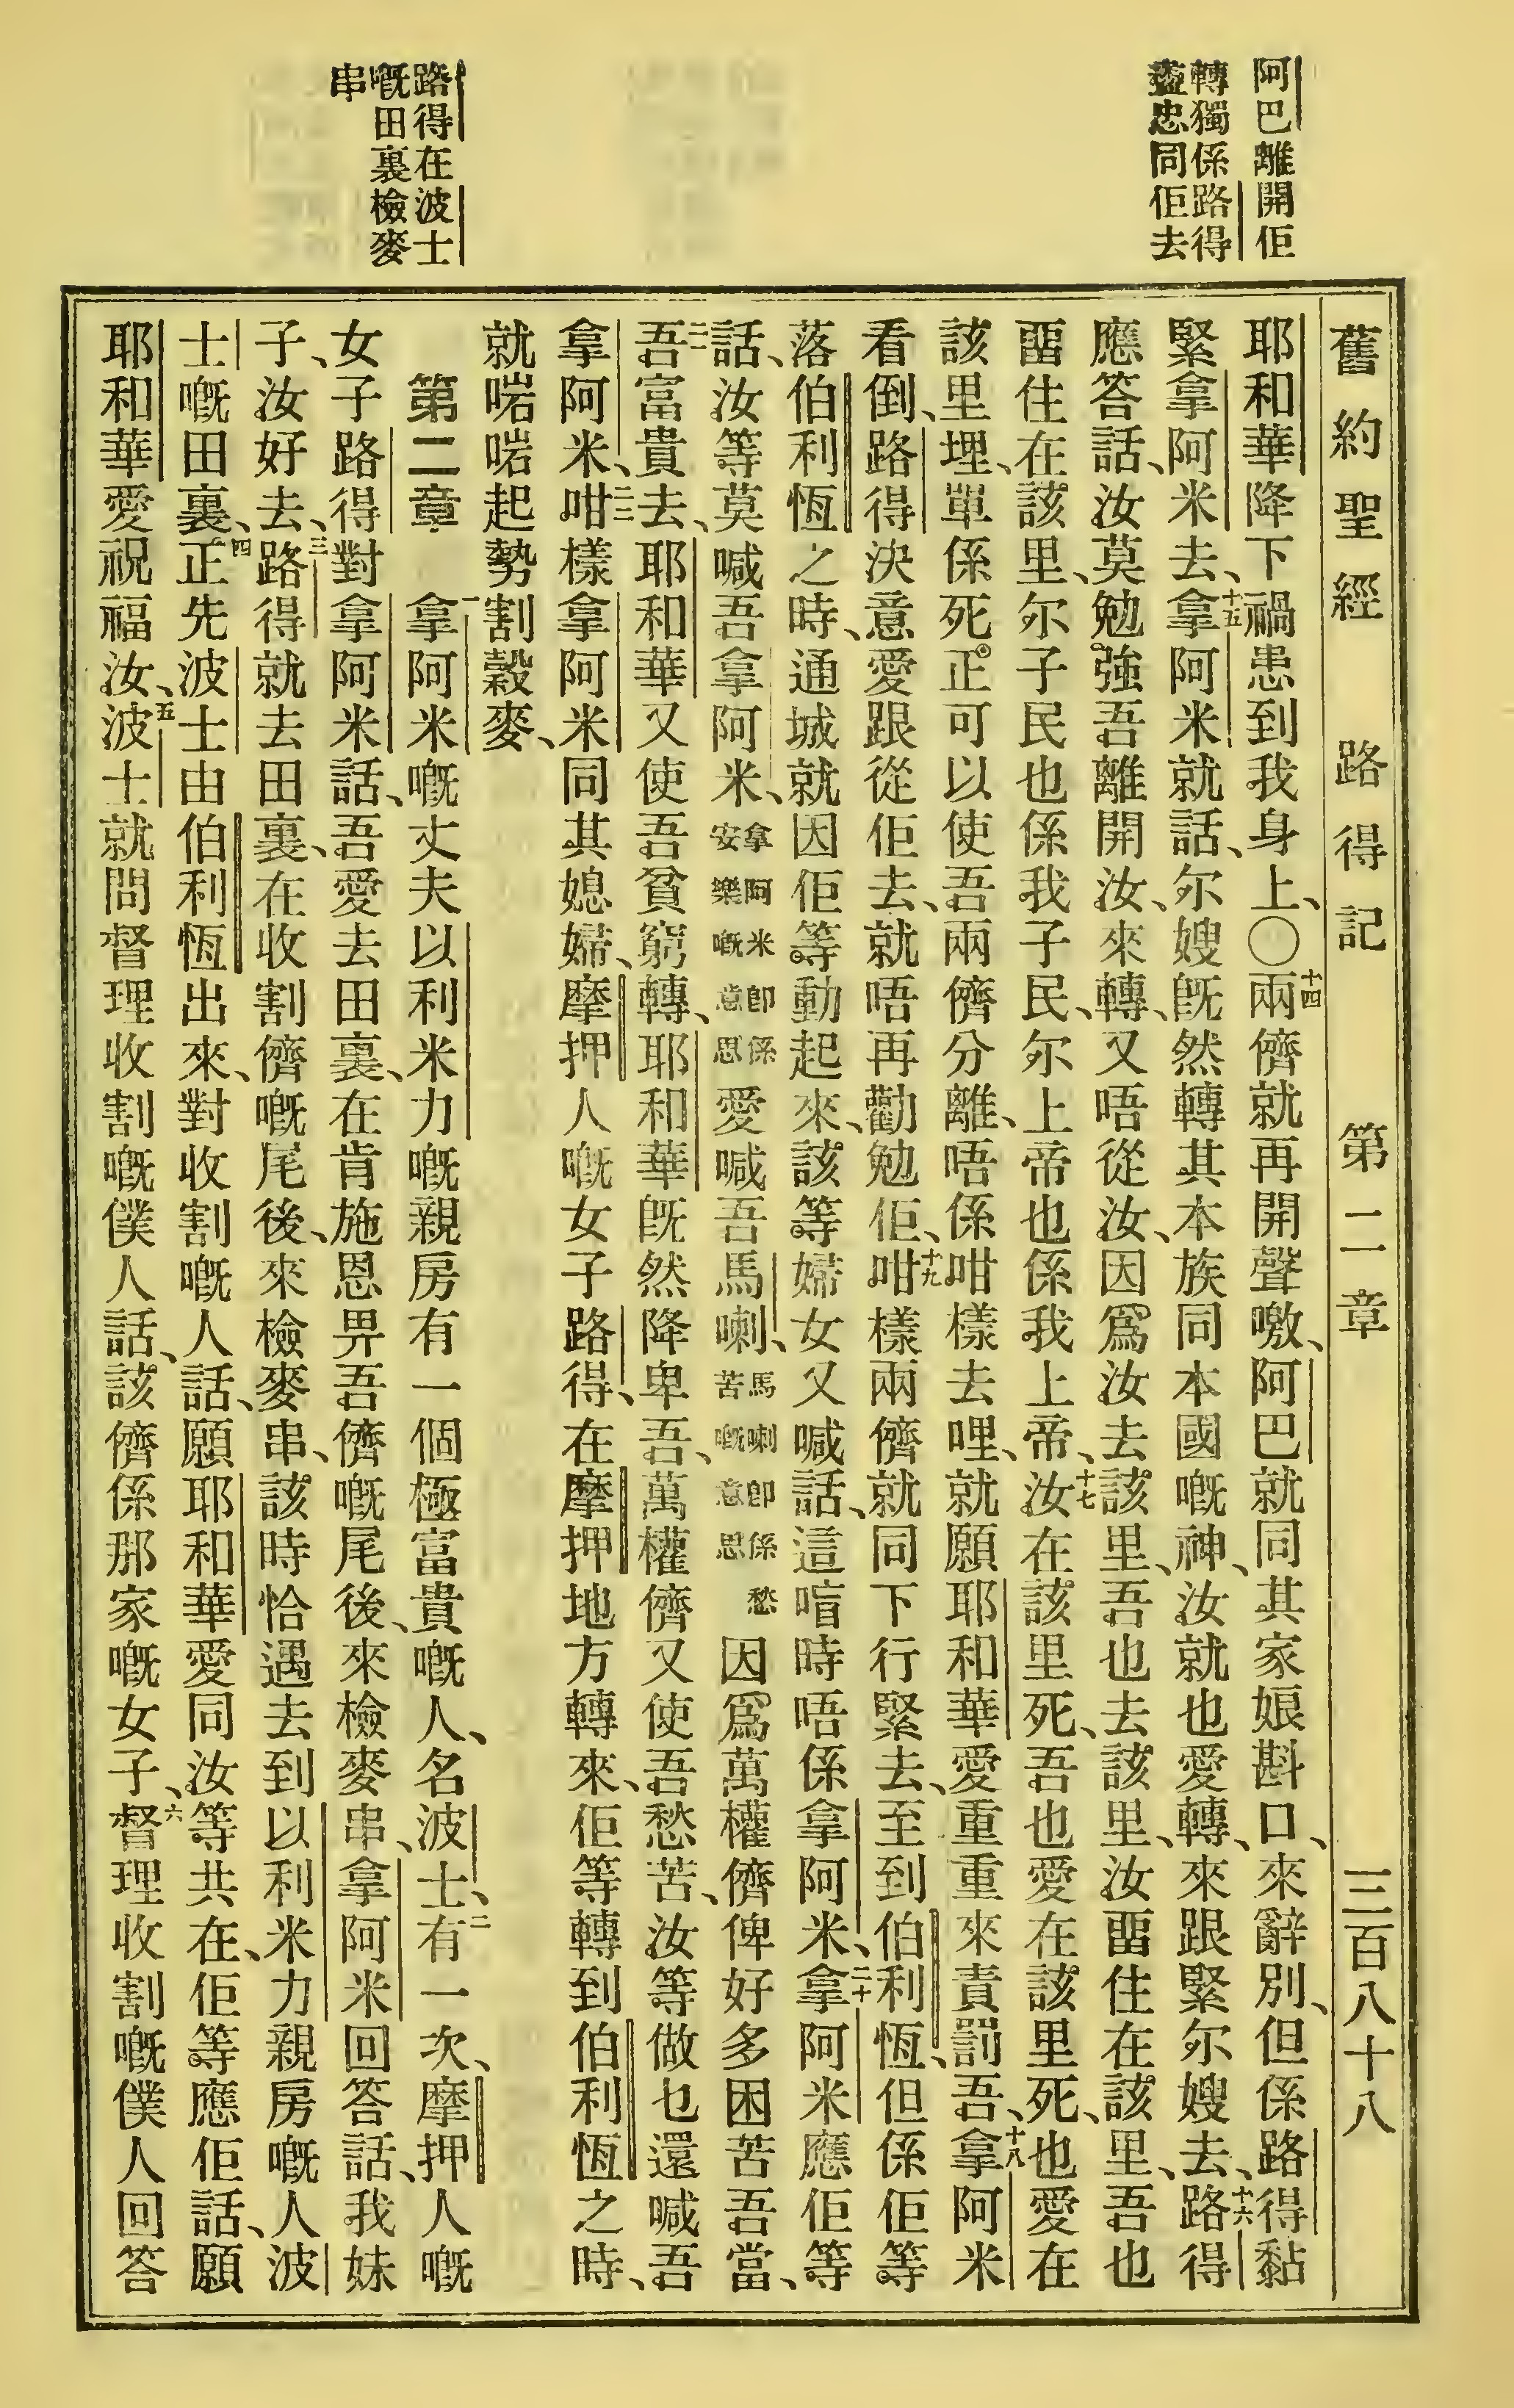 阿巴離開佢
轉獨係路得
盡忠同佢去
路得在波士
嘅田裏檢麥
串
舊約聖經 路得記 第二章 三百八十八
耶和華降下禍患到我身上、〇十四兩儕就再開聲噭、阿巴就同其家娘斟口、來辭別、但係路得黏
緊拿阿米去、十五拿阿米就話、尔嫂旣然轉其本族同本國嘅神、汝就也愛轉、來跟緊尔嫂去、十六路得
應答話、汝莫勉強吾離開汝、來轉、又唔從汝、因爲汝去該里、吾也去該里、汝畱住在該里、吾也
畱住在該里、尔子民也係我子民、尔上帝也係我上帝、十七汝在該里死、吾也愛在該里死、也愛在
該里埋、單係死正可以使吾兩儕分離、唔係咁樣去哩、就願耶和華愛重重來責罰吾、十八拿阿米
看倒、路得決意愛跟從佢去、就唔再勸勉佢、十九咁樣兩儕就同下行緊去、至到伯利恆、但係佢等
落伯利恆之時、通城就因佢等動起來、該等婦女又喊話、這㫮時唔係拿阿米、二十拿阿米應佢等
話、汝等莫喊吾拿阿米、拿阿米卽係安樂嘅意思愛喊吾馬喇、馬喇卽係愁苦嘅意思因爲萬權儕俾好多困苦吾當、
二一吾富貴去、耶和華又使吾貧窮轉、耶和華旣然降卑吾、萬權儕又使吾愁苦、汝等做乜還喊吾
拿阿米、二二咁樣拿阿米同其媳婦、摩押人嘅女子路得、在摩押地方轉來、佢等轉到伯利恆之時、
就啱啱起勢割穀麥、
第二章 一拿阿米嘅丈夫以利米力嘅親房有一個極富貴嘅人、名波士、二有一次、摩押人嘅
女子路得對拿阿米話、吾愛去田裏、在肯施恩畀吾儕嘅尾後、來檢麥串、拿阿米回答話、我妹
子、汝好去、三路得就去田裏、在收割儕嘅尾後、來檢麥串、該時恰遇去到以利米力親房嘅人波
士嘅田裏、四正先波士由伯利恆出來、對收割嘅人話、願耶和華愛同汝等共在、佢等應佢話、願
耶和華愛祝福汝、五波士就問督理收割嘅僕人話、該儕係那家嘅女子、六督理收割嘅僕人回答